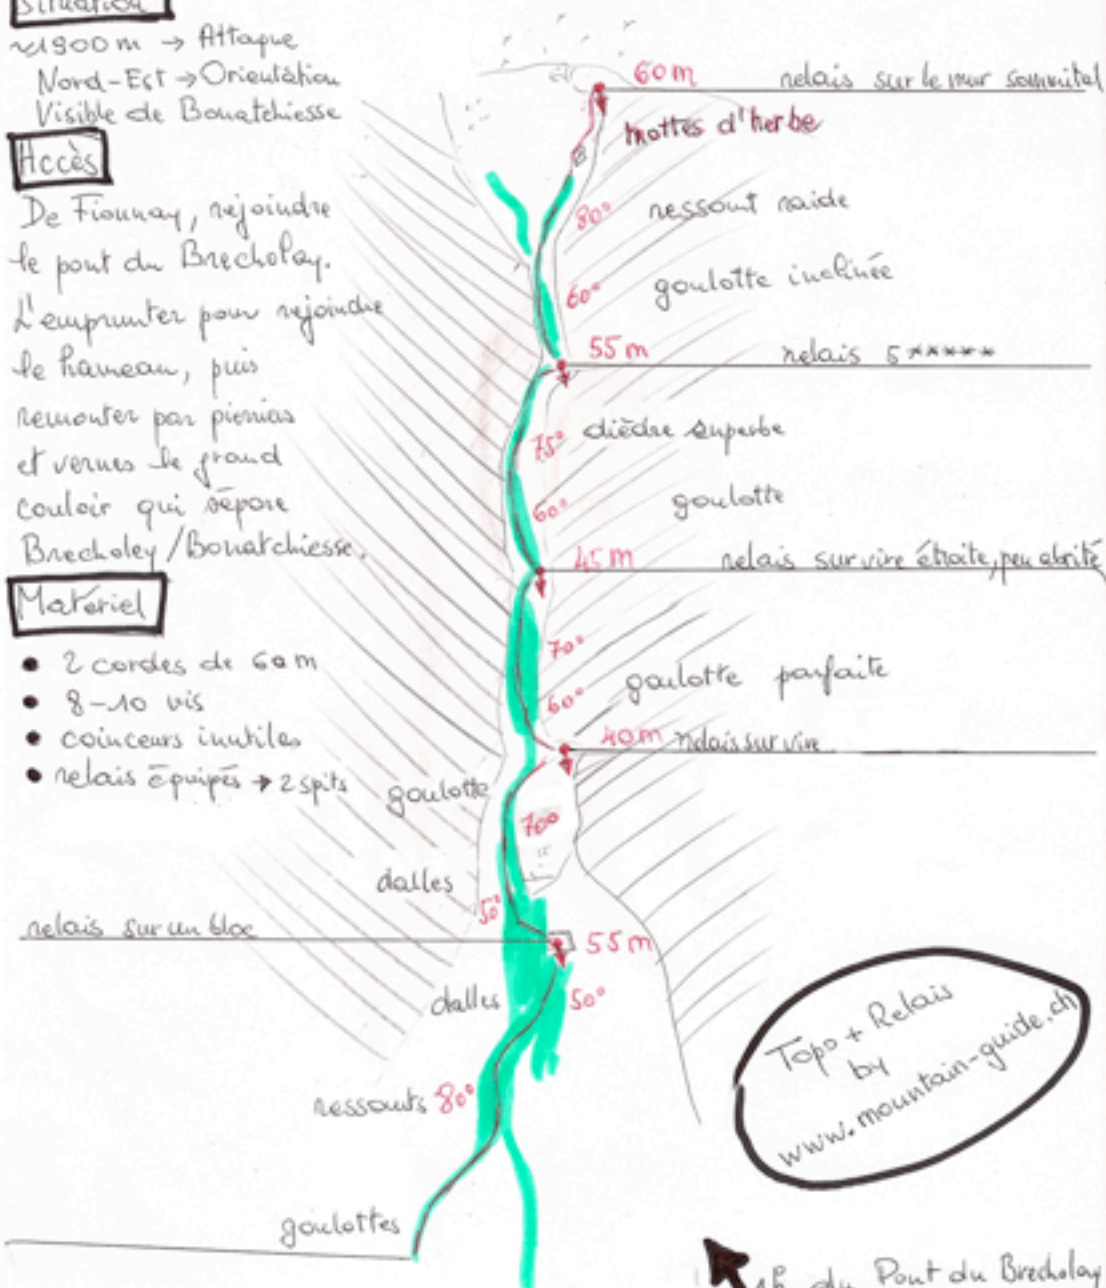 Situation
~1900 m → Attaque
Nord-Est → Orientation
Visible de Bonatchiesse
Accès
De Fionnay, rejoindre
le pont du Brecholay.
L'emprunter pour rejoindre
le hameau, puis
remonter par pierriers
et vernes le grand
couloir qui sépare
Brecholey/Bonatchiesse.
Matériel
● 2 cordes de 60 m
● 8-10 vis
● coinceurs inutiles
● relais équipés → 2 spits
60 m relais sur le mur sommital
mottes d'herbe
80° ressaut raide
60° goulotte inclinée
55 m relais 5*****
75° dièdre superbe
60° goulotte
45 m relais sur vire étroite, peu abrité
70°
60° goulotte parfaite
40 m relais sur vire
goulotte 70°
dalles 50°
relais sur un bloc 55 m
dalles 50°
ressauts 80°
goulottes
Topo + Relais
by
www.mountain-guide.ch
1h du Pont du Brecholay